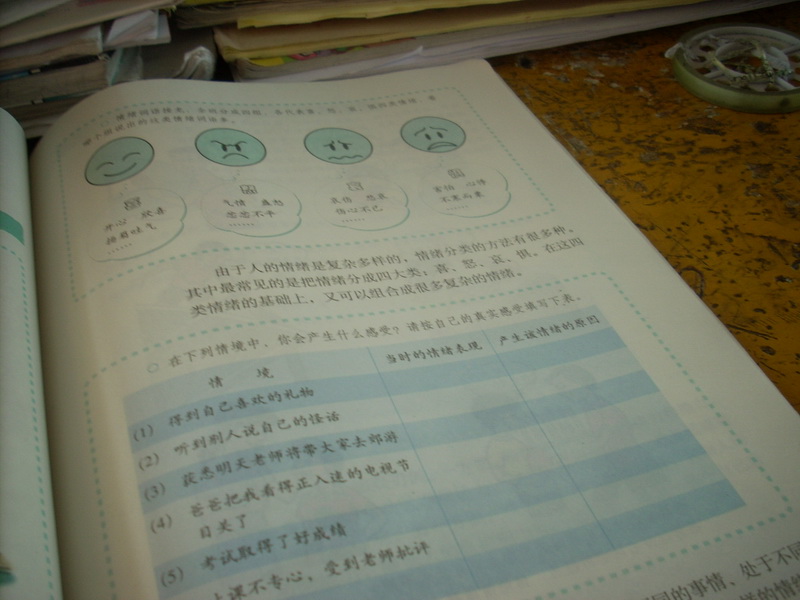 开心 欢喜
扬眉吐气
……
气愤
忿忿不平
……
哀伤 悲哀
伤心不已
……
害怕 心悸
不寒而栗
……
由于人的情绪是复杂多样的,情绪分类的方法有很多种。
其中最常见的是把情绪分成四大类:喜、怒、哀、惧。在这四
类情绪的基础上,又可以组合成很多复杂的情绪。
○ 在下列情境中,你会产生什么感受?请按自己的真实感受填写下表。
情 境 当时的情绪表现 产生该情绪的原因
(1) 得到自己喜欢的礼物
(2) 听到别人说自己的怪话
(3) 获悉明天老师将带大家去郊游
(4) 爸爸把我看得正入迷的电视节
目关了
(5) 考试取得了好成绩
上课不专心,受到老师批评
同的事情、处于不同